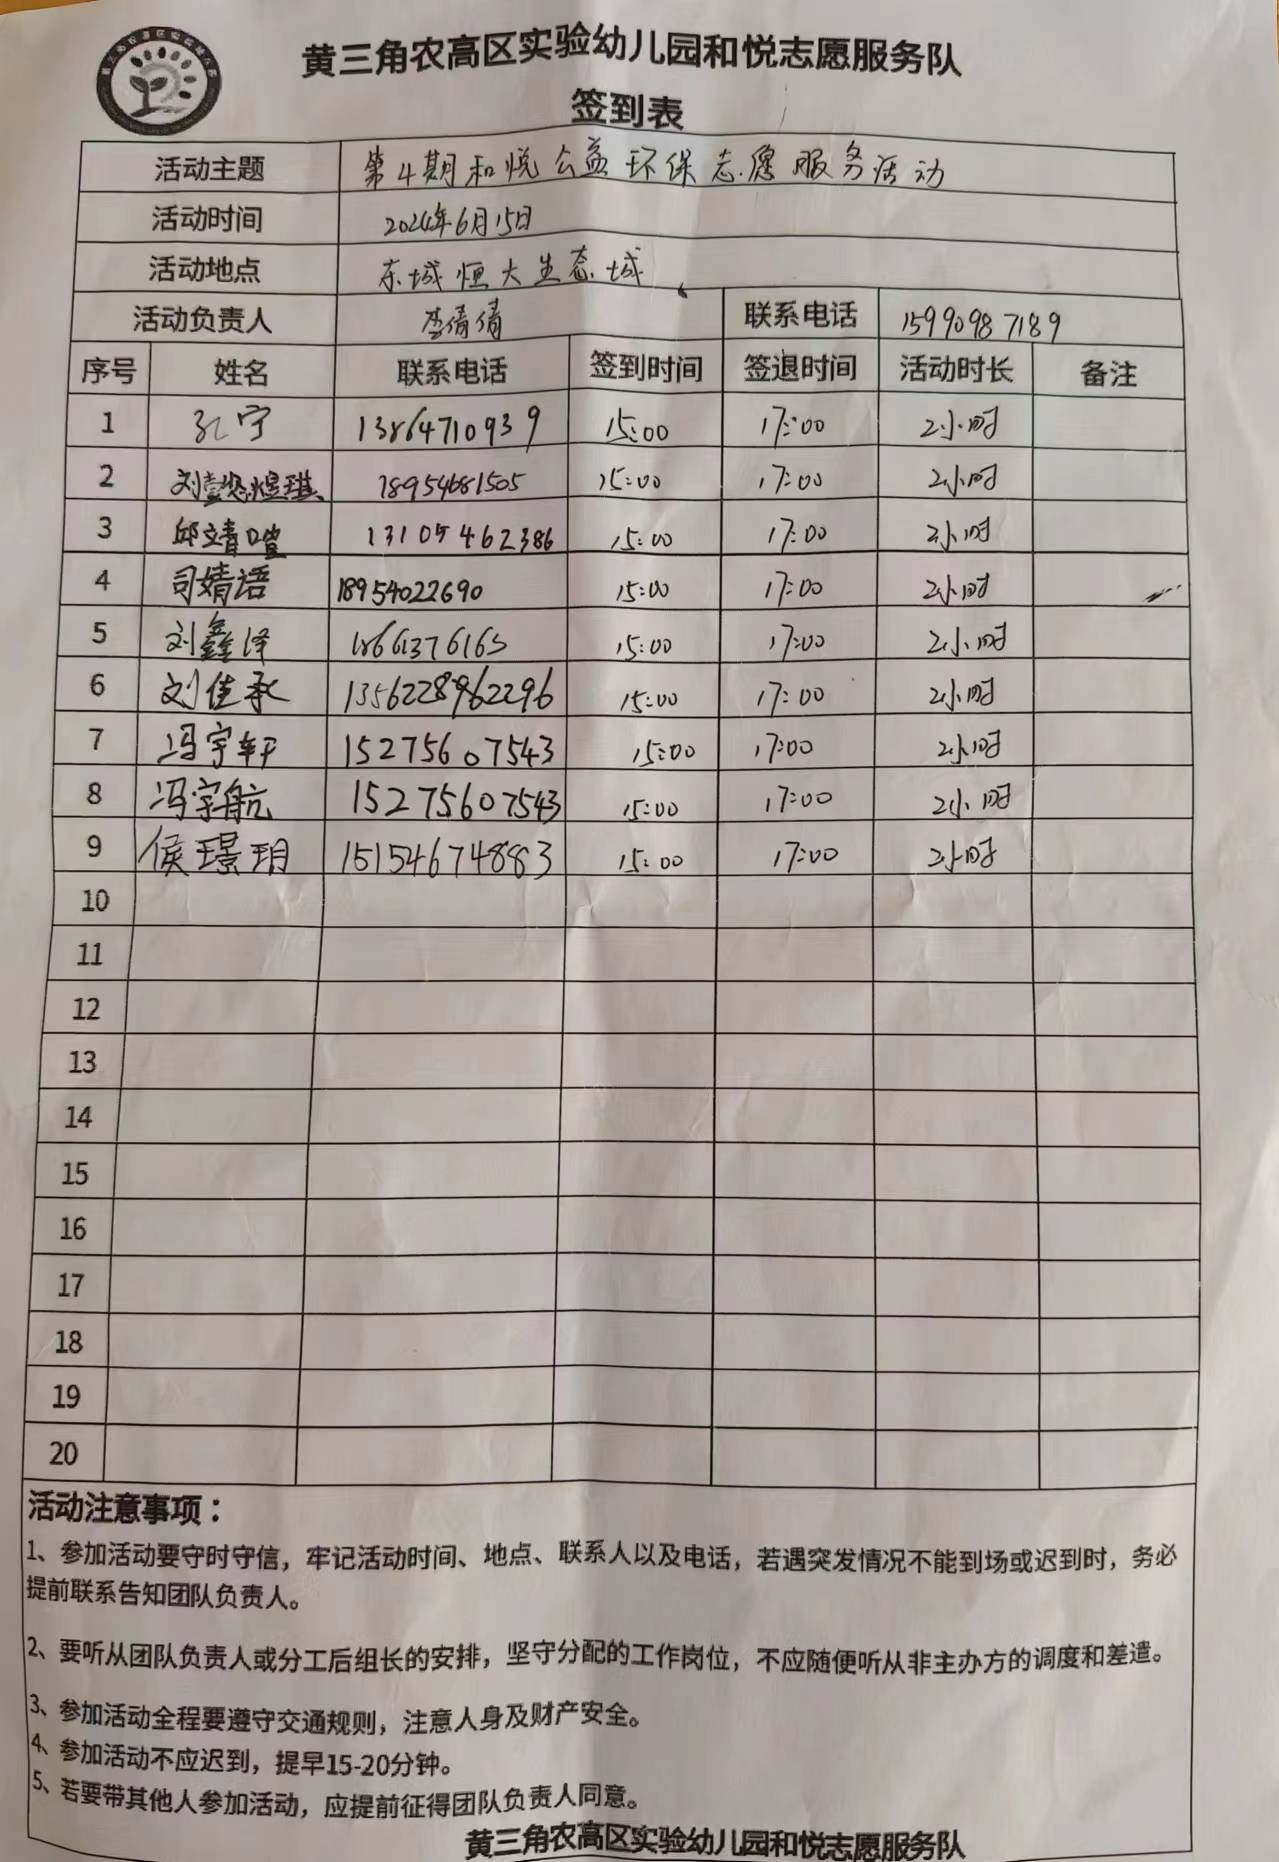 黄三角农高区实验幼儿园和悦志愿服务队
签到表
活动主题 第4期和悦公益环保志愿服务活动
活动时间 2024年6月15日
活动地点 东城恒大生态城
活动负责人 李倩倩 联系电话 15990987189
序号 姓名 联系电话 签到时间 签退时间 活动时长 备注
1 孔宁 13864710939 15:00 17:00 2小时
2 刘 煜琪 18954681505 15:00 17:00 2小时
3 邱靖喧 13105462386 15:00 17:00 2小时
4 司婧语 18954022690 15:00 17:00 2小时
5 刘鑫泽 1866376165 15:00 17:00 2小时
6 刘佳承 1356228962296 15:00 17:00 2小时
7 冯宇轩 15275607543 15:00 17:00 2小时
8 冯宇航 15275607543 15:00 17:00 2小时
9 侯璟玥 15154674883 15:00 17:00 2小时
10
11
12
13
14
15
16
17
18
19
20
活动注意事项：
1、参加活动要守时守信，牢记活动时间、地点、联系人以及电话，若遇突发情况不能到场或迟到时，务必
提前联系告知团队负责人。
2、要听从团队负责人或分工后组长的安排，坚守分配的工作岗位，不应随便听从非主办方的调度和差遣。
3、参加活动全程要遵守交通规则，注意人身及财产安全。
4、参加活动不应迟到，提早15-20分钟。
5、若要带其他人参加活动，应提前征得团队负责人同意。
黄三角农高区实验幼儿园和悦志愿服务队